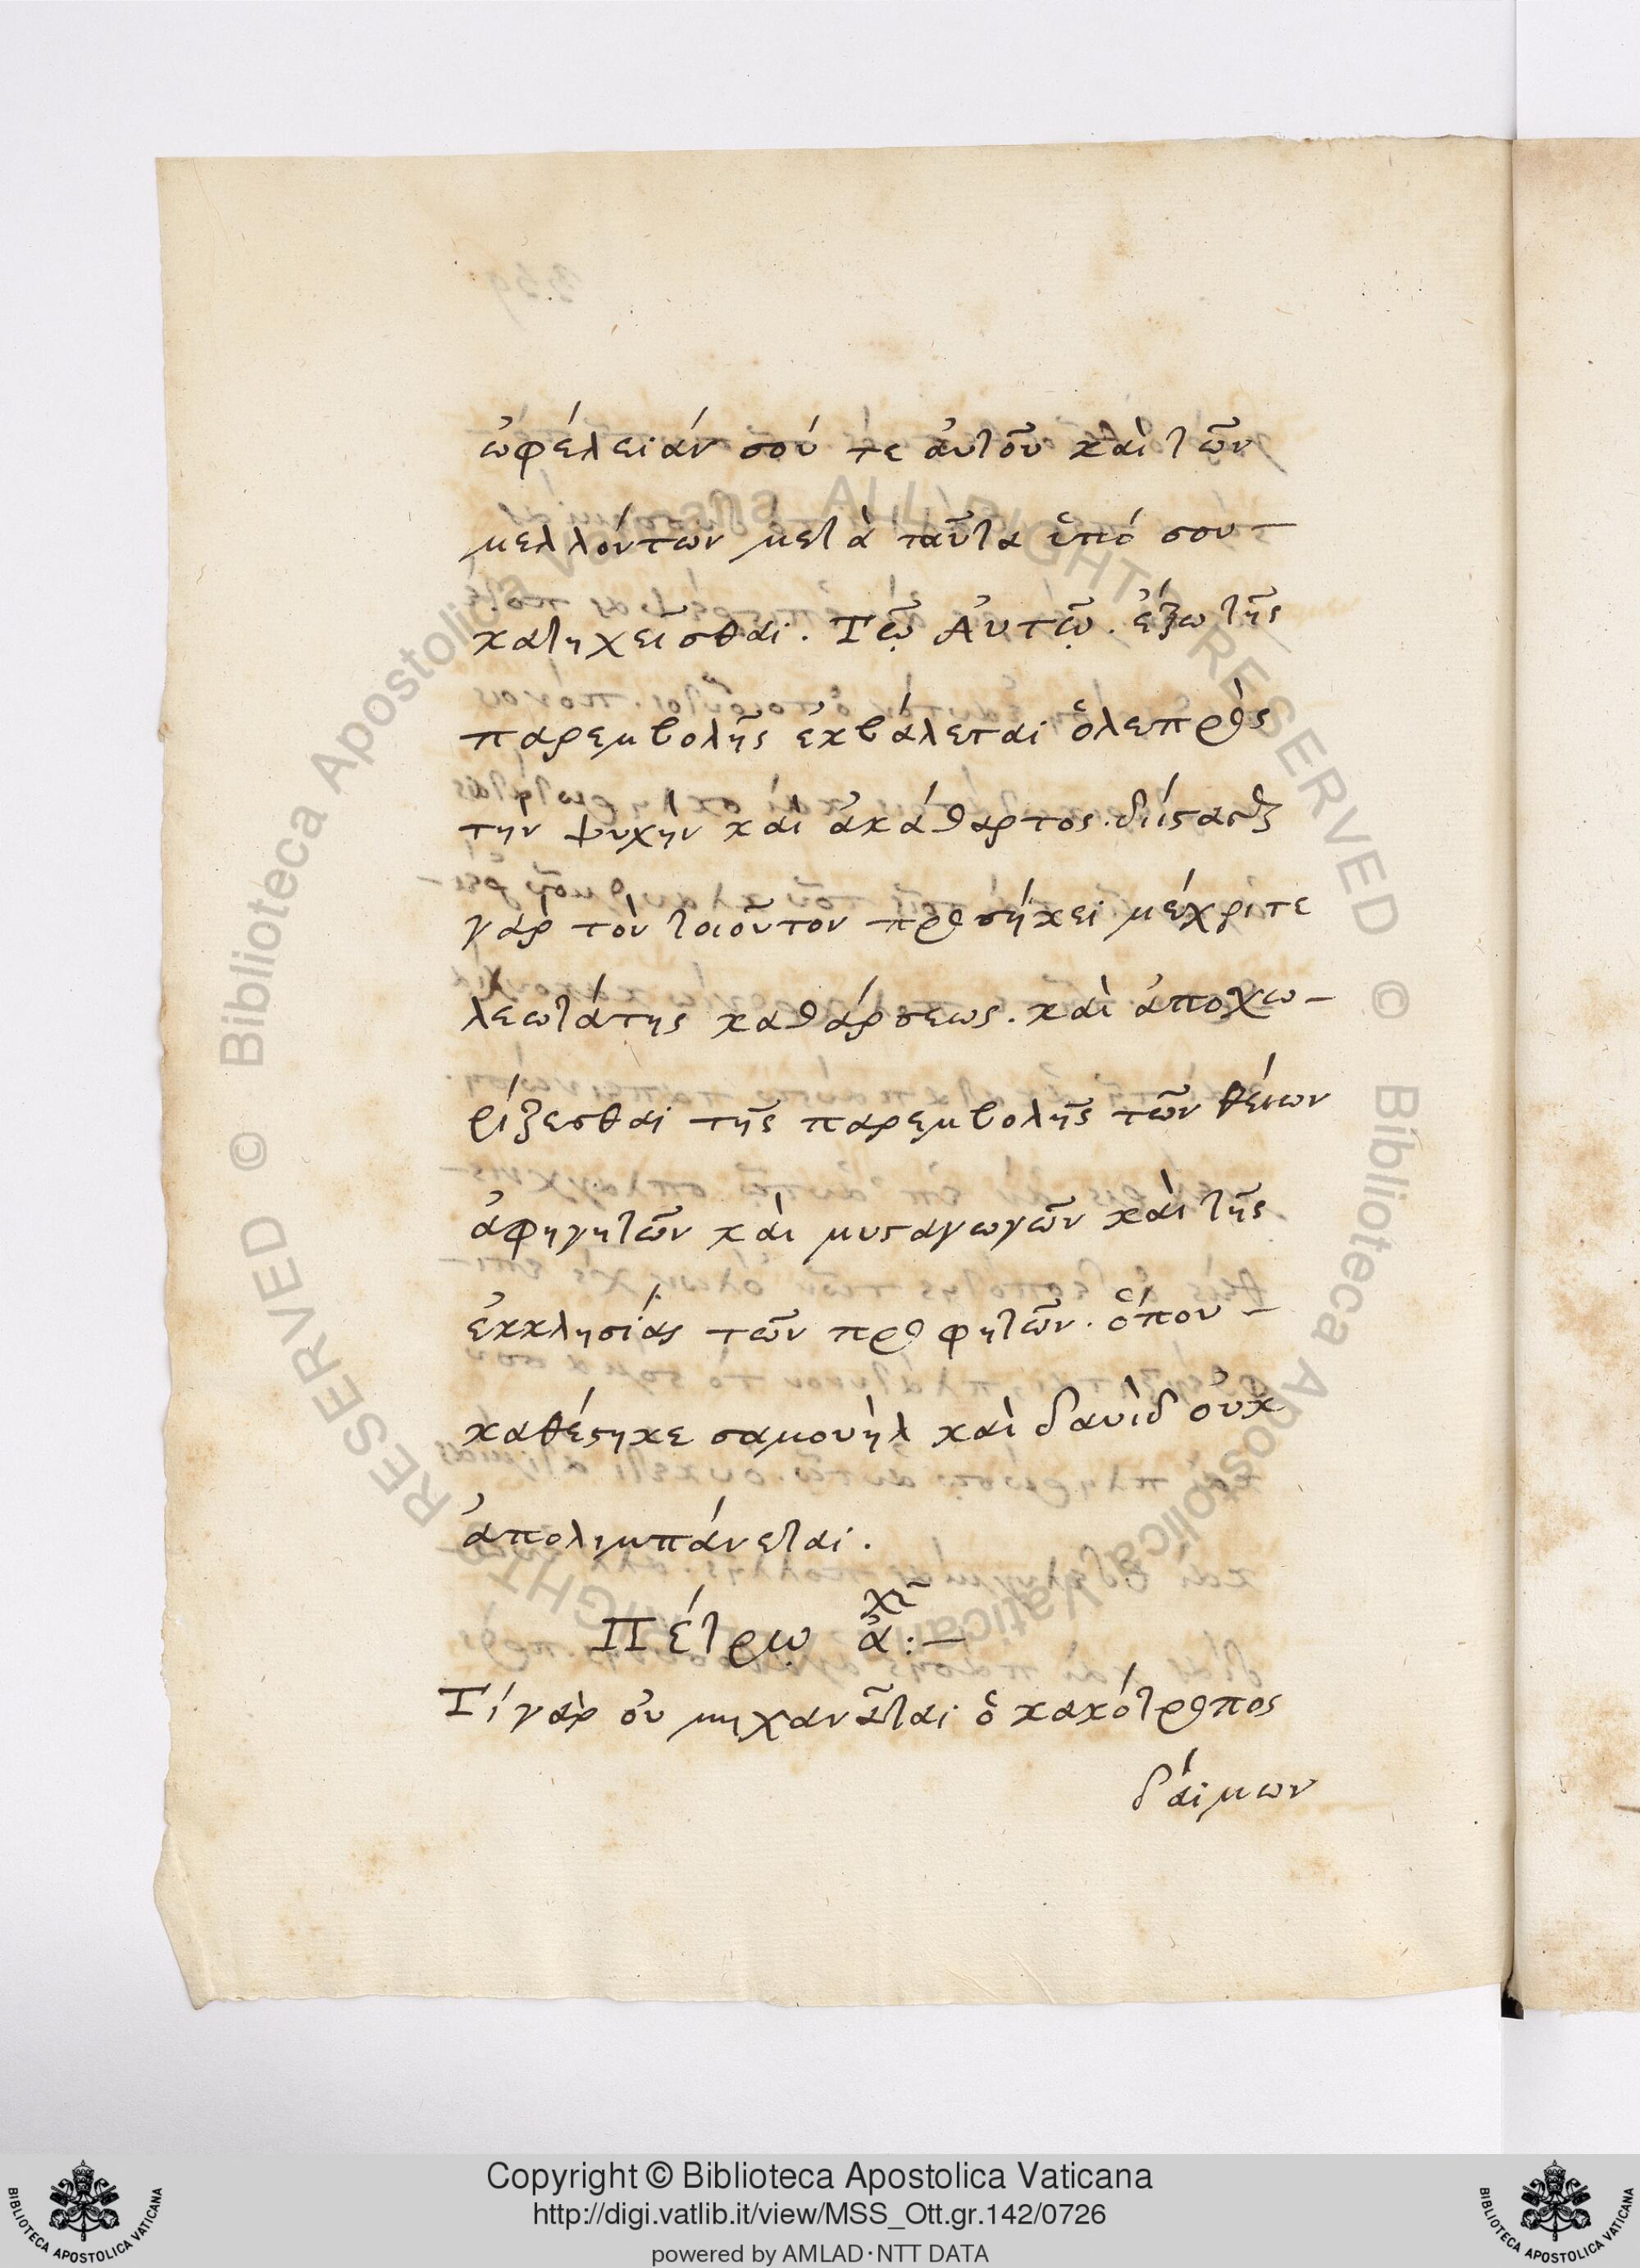 ὠφέλειάν σού τε ἀυτοῦ καὶ τῶν
μελλόντων μετὰ ταῦτα ὑπό σου
κατηχεῖσθαι. Τῷ Αὐτῷ. ἐξω τῆς
παρεμβολῆς ἐκβάλεται ὁ λεπρὸς
τὴν ψυχὴν καὶ ἀκάθαρτος.
γὰρ τὸν τοιοῦτον προσήκει μέχρι τε
λεωτάτης καθάρσεως. καὶ ἀποχω-
ρίζεσθαι τῆς παρεμβολῆς τῶν θείων
ἀφηγητῶν καὶ μυσταγωγῶν καὶ τῆς
ἐκκλησίας τῶν προφητῶν. ὅπου
καθέστηκε σαμουὴλ καὶ δαυὶδ οὐκ
ἀπολιμπάνεται.
Πέτρῳ
Τί γὰρ οὐ μηχανᾶται ὁ κακότροπος
δάιμων
Copyright © Biblioteca Apostolica Vaticana
http://digi.vatlib.it/view/MSS_Ott.gr.142/0726
powered by AMLAD·NTT DATA
BIBLIOTECA APOSTOLICA VATICANA
BIBLIOTECA APOSTOLICA VATICANA
© Biblioteca Apostolica Vaticana ALL RIGHT RESERVED
© Biblioteca Apostolica Vaticana RIGHT RESERVED